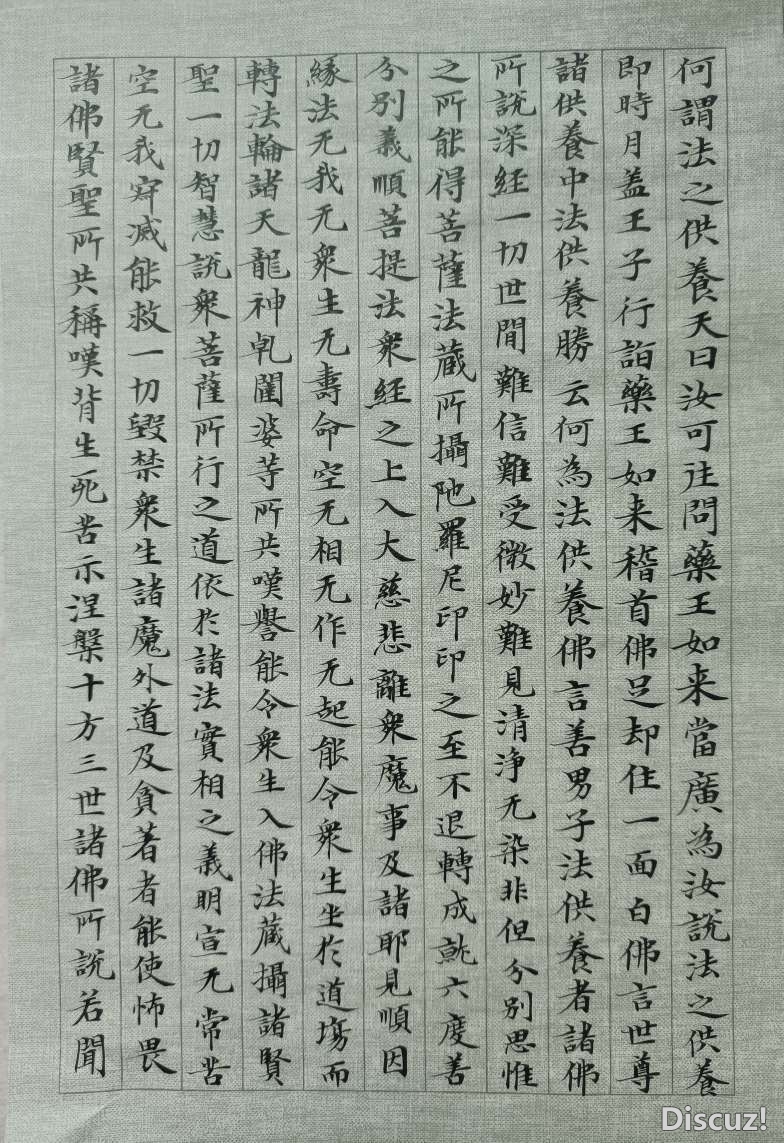 何謂法之供養天曰汝可往問藥王如来當廣為汝說法之供養
即時月盖王子行詣藥王如来稽首佛足却住一面白佛言世尊
諸供養中法供養勝云何為法供養佛言善男子法供養者諸佛
所說深經一切世間難信難受微妙難見清淨无染非但分別思惟
之所能得菩薩法蔵所攝陁羅尼印印之至不退轉成就六度善
分別義順菩提法衆經之上入大慈悲離衆魔事及諸耶見順因
緣法无我无衆生无壽命空无相无作无起能令衆生坐於道場而
轉法輪諸天龍神乹闥婆等所共嘆譽能令衆生入佛法蔵攝諸賢
聖一切智慧說衆菩薩所行之道依於諸法實相之義明宣无常苦
空无我寂滅能救一切毀禁衆生諸魔外道及貪著者能使怖畏
諸佛賢聖所共稱嘆背生死苦示涅槃十方三世諸佛所說若聞
Discuz!